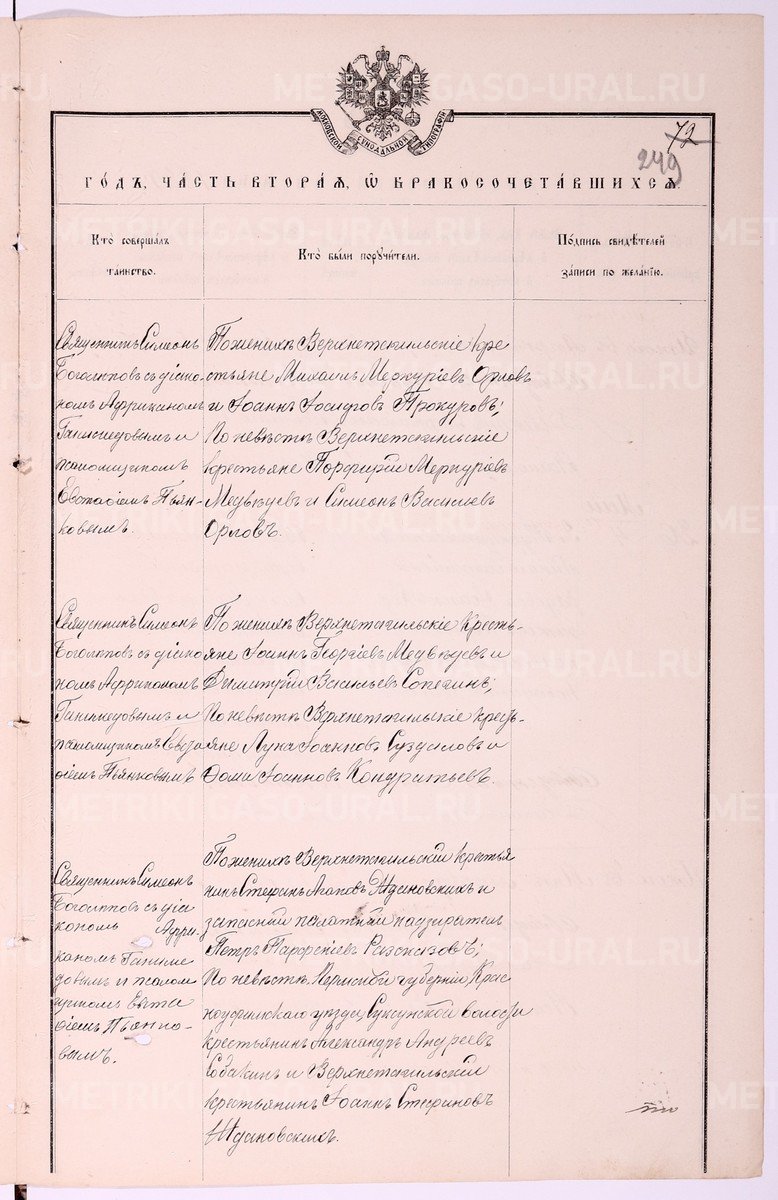 МОСКОВСКОЙ СѴНОДАЛЬНОЙ ТИПОГРАФІИ
72
249
ГО́ДЪ, ЧА́СТЬ ВТОРА́Я, Ѡ҆ БРАКОСОЧЕТА́ВШИХСЯ
Кто̀ соверша́лъ
та́инство.
Кто̀ бы́ли порꙋчи́тели.
По́дпись свидѣ́телей
за́писи по жела́нію.
Священникъ Симеонъ
Боголѣповъ съ діако-
номъ Африканомъ
Ганимедовымъ и
псаломщикомъ
Евстаѳіемъ Пьян-
ковымъ.
По женихѣ Верхнетагильскіе кре
стьяне Михаилъ Меркуріевъ Орловъ
и Іоаннъ Іосифовъ Прокуровъ;
По невѣстѣ Верхнетагильскіе
крестьяне Порфирій Меркуріевъ
Медвѣдевъ и Симеонъ Васильевъ
Орловъ.
Священникъ Симеонъ
Боголѣповъ съ діако
номъ Африканомъ
Ганимедовымъ и
псаломщикомъ Евста
ѳіемъ Пьянковымъ
По женихѣ Верхнетагильскіе кресть-
яне Іоаннъ Георгіевъ Медвѣдевъ и
Димитрій Васильевъ Сопегинъ;
По невѣстѣ Верхнетагильскіе кресть
яне Лука Іоанновъ Суздаловъ и
Ѳома Іоанновъ Кондратьевъ.
Священникъ Симеонъ
Боголѣповъ съ діа
кономъ Афри-
каномъ Ганиме
довымъ и псалом
щикомъ Евста
ѳіемъ Пьянко-
вымъ.
По женихѣ Верхнетагильскій крестья
нинъ Стефанъ Агаповъ Ждановскихъ и
запасный палатный надзиратель
Петръ Парфеніевъ Разсказовъ;
По невѣстѣ Пермской губерніи, Крас
ноуфимскаго уѣзда, Суксунской волости
крестьянинъ Александръ Андреевъ
Собакинъ и Верхнетагильскій
крестьянинъ Іоаннъ Стефановъ
Ждановскихъ.
METRIKI.GASO-URAL.RU